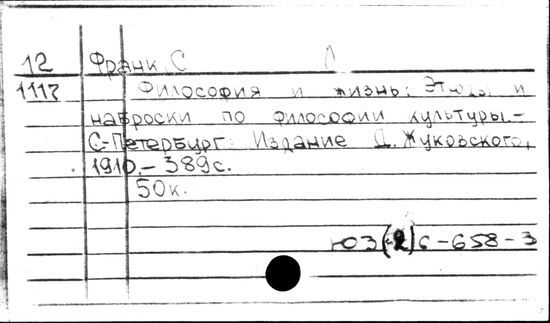 12 Франк, С
1117 Философия и жизнь: Этюды и
наброски по философии культуры.-
С-Петербург: Издание Д. Жуковского,
1910.- 389с.
50к.
Ю3(2)6-658-3